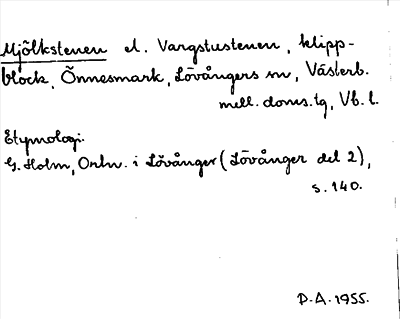 Mjölkstenen el. Vargstustenen, klipp-
block, Önnesmark, Lövångers sn, Västerb.
mell. doms.tg, Vb. l.
Etymologi.
G. Holm, Ortn. i Lövånger (Lövånger del 2),
s. 140.
D.A. 1955.